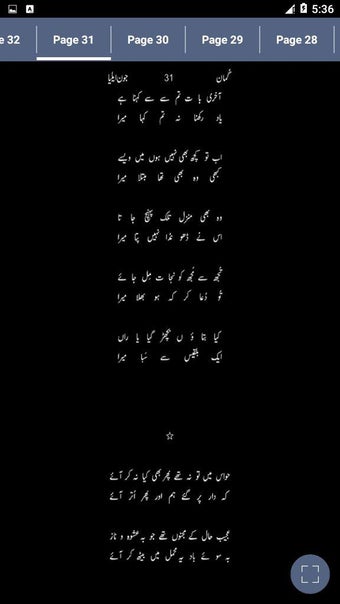 5:36
e 32
Page 31
Page 30
Page 29
Page 28
گمان 31 جون ایلیا
آخری بات تم سے سے کہنا ہے
یاد رکھنا نہ تم کہا میرا
اب تو کچھ بھی نہیں ہوں میں ویسے
کبھی وہ بھی تھا مبتلا میرا
وہ بھی منزل تلک پہنچ جاتا
اس نے ڈھونڈا نہیں پتا میرا
تُجھ سے مُجھ کو نجات مِل جائے
تُو دُعا کر کہ ہو بھلا میرا
کیا بتاؤں بچھڑ گیا یاراں
ایک بلقیس سے سَبا میرا
☆
حواس میں تو نہ تھے پھر بھی کیا نہ کر آئے
کہ دار پر گئے ہم اور پھر اُتر آئے
عجیب حال کے مجنوں تھے جو بہ عشوہ و ناز
بہ سوئے باد یہ محمل میں بیٹھ کر آئے